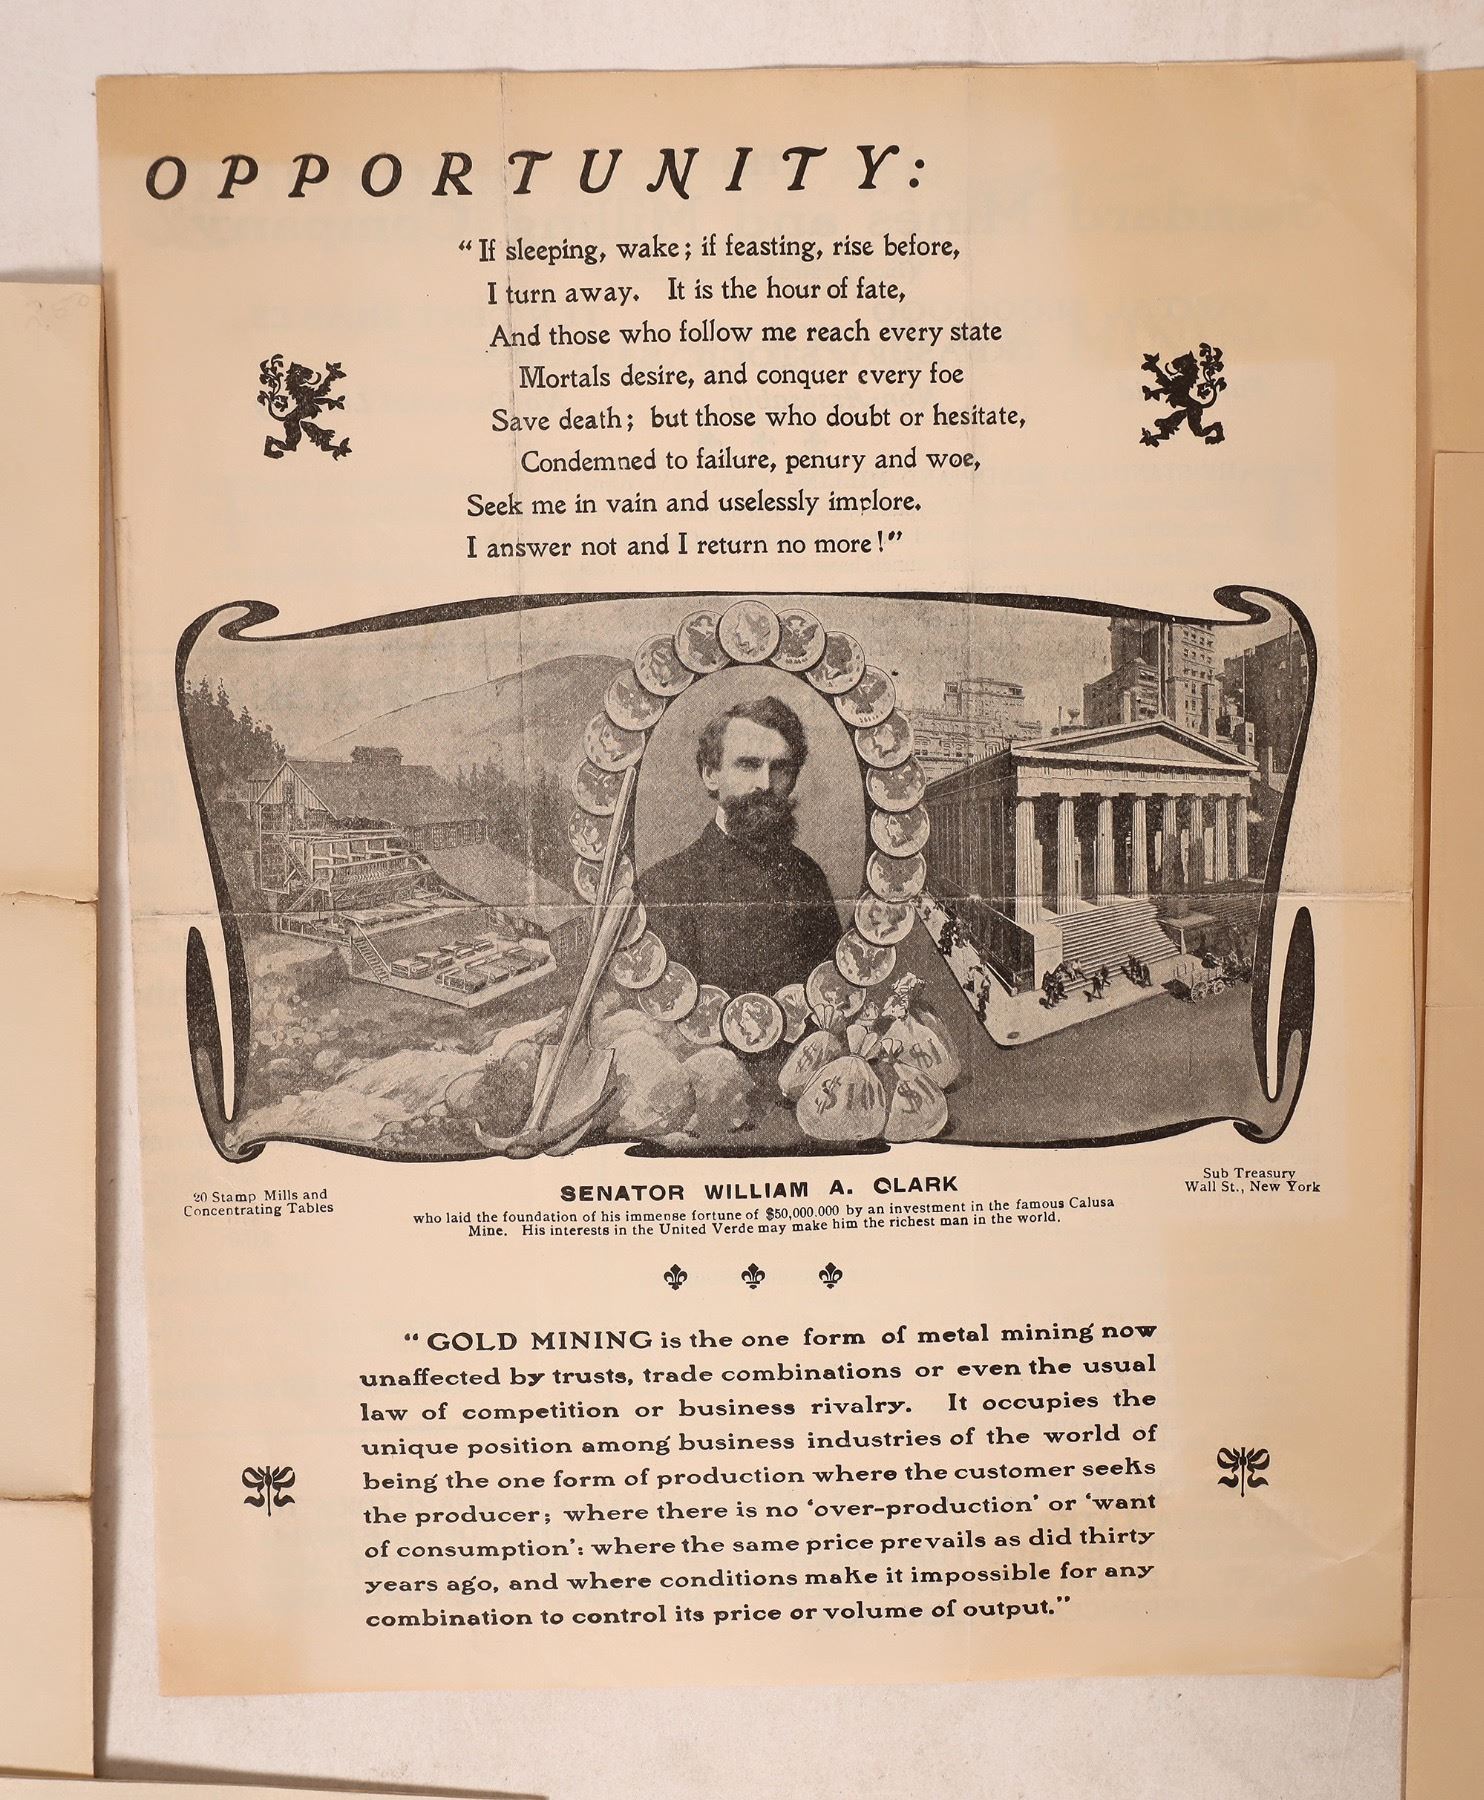 OPPORTUNITY:
“If sleeping, wake; if feasting, rise before,
I turn away. It is the hour of fate,
And those who follow me reach every state
Mortals desire, and conquer every foe
Save death; but those who doubt or hesitate,
Condemned to failure, penury and woe,
Seek me in vain and uselessly implore.
I answer not and I return no more!”
$10
$
$
$
20 Stamp Mills and
Concentrating Tables
SENATOR WILLIAM A. CLARK
who laid the foundation of his immense fortune of $50,000.000 by an investment in the famous Calusa
Mine. His interests in the United Verde may make him the richest man in the world.
Sub Treasury
Wall St., New York
“GOLD MINING is the one form of metal mining now
unaffected by trusts, trade combinations or even the usual
law of competition or business rivalry. It occupies the
unique position among business industries of the world of
being the one form of production where the customer seeks
the producer; where there is no ‘over-production’ or ‘want
of consumption’: where the same price prevails as did thirty
years ago, and where conditions make it impossible for any
combination to control its price or volume of output.”